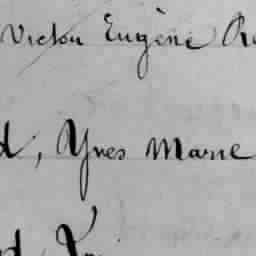 Victor Eugène R
d, Yves Marie
d Y